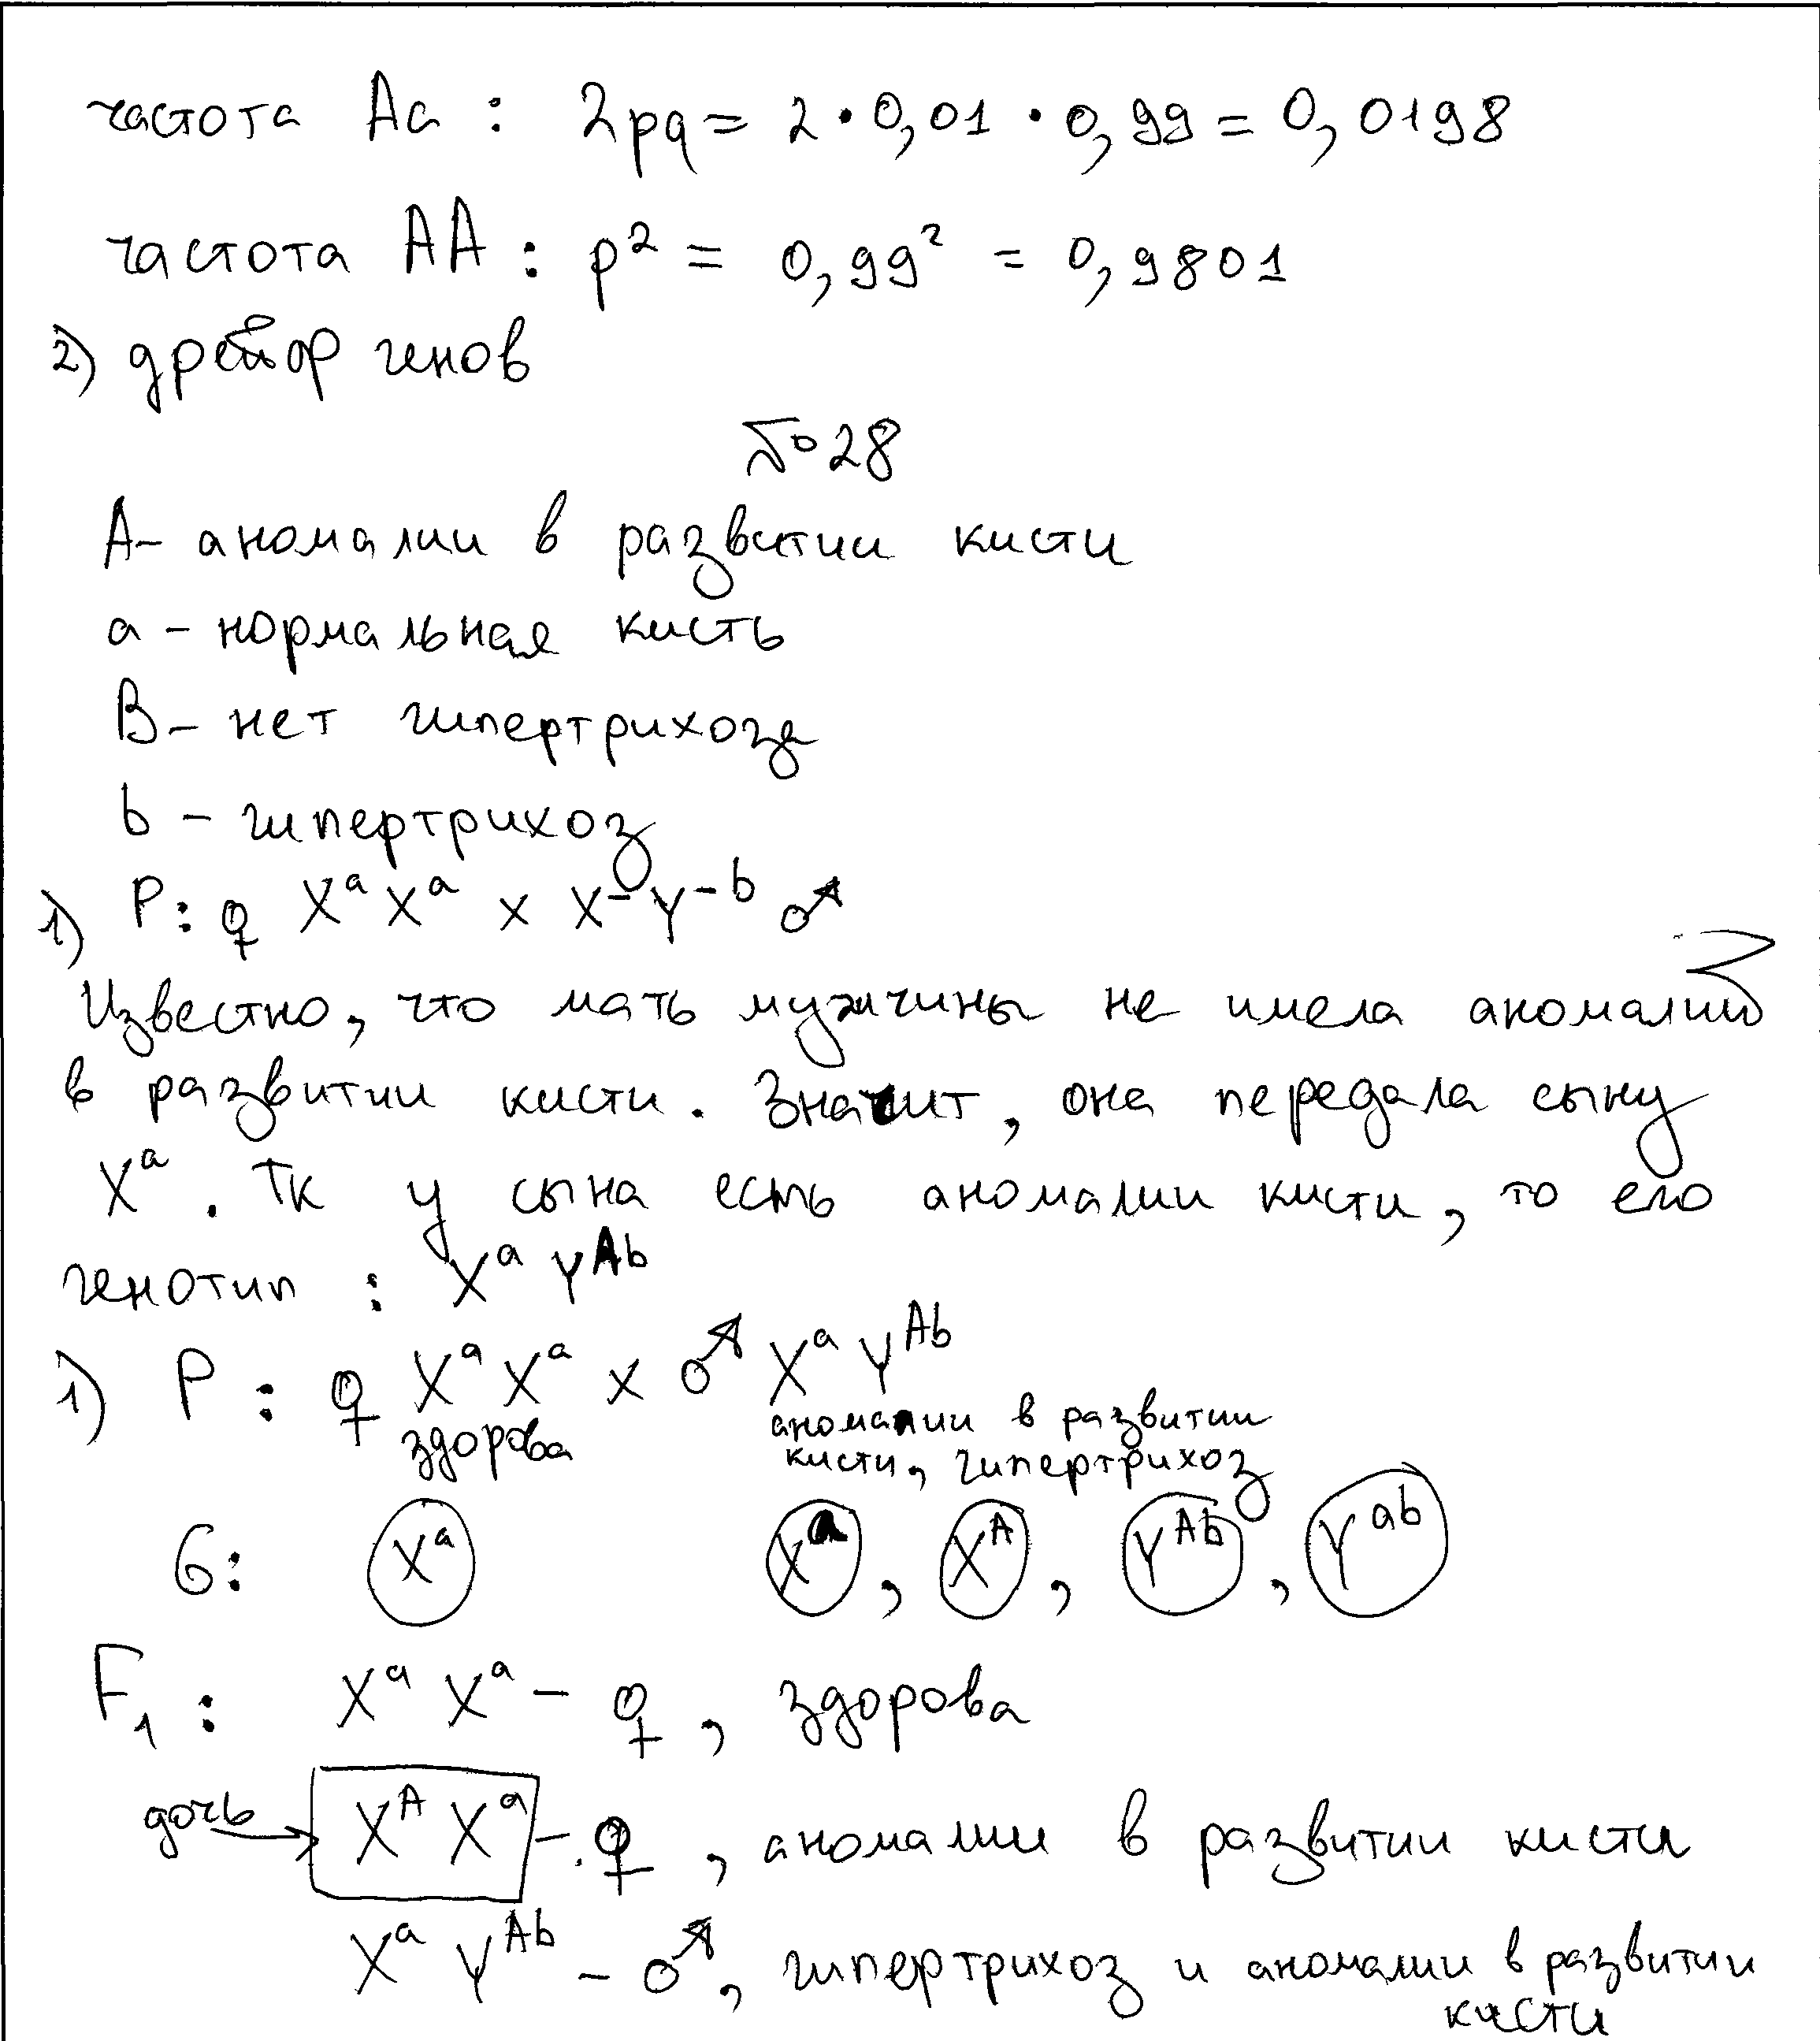 частота Аа : 2pq = 2 · 0,01 · 0,99 = 0,0198
частота АА : p² = 0,99² = 0,9801
2) дрейф генов
№28
А – аномалии в развитии кисти
а – нормальная кисть
В – нет гипертрихоза
b – гипертрихоз
1) Р: ♀ XᵃXᵃ x X⁻Y⁻ᵇ ♂
Известно, что мать мужчины не имела аномалий
в развитии кисти. Значит, она передала сыну
Xᵃ. Тк у сына есть аномалии кисти, то его
генотип : XᵃYᴬᵇ
1) Р : ♀ XᵃXᵃ x ♂ XᵃYᴬᵇ
здорова аномалии в развитии
кисти, гипертрихоз
G: Xᵃ Xᵃ, Xᴬ, Yᴬᵇ, Yᵃᵇ
F₁ : XᵃXᵃ – ♀, здорова
дочь → XᴬXᵃ – ♀, аномалии в развитии кисти
XᵃYᴬᵇ – ♂, гипертрихоз и аномалии в развитии
кисти